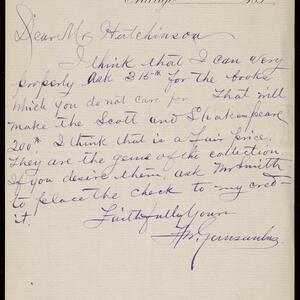 Chicago
Dear Mr Hutchinson
I think that I can very
properly ask 315⁰⁰ for the books
which you do not care for That will
make the Scott and Shakespeare
200⁰⁰. I think that is a fair price.
They are the gems of the collection
If you desire them, ask Mr Smith
to place the check to my cred-
it.
Faithfully Yours
F.W. Gunsaulus